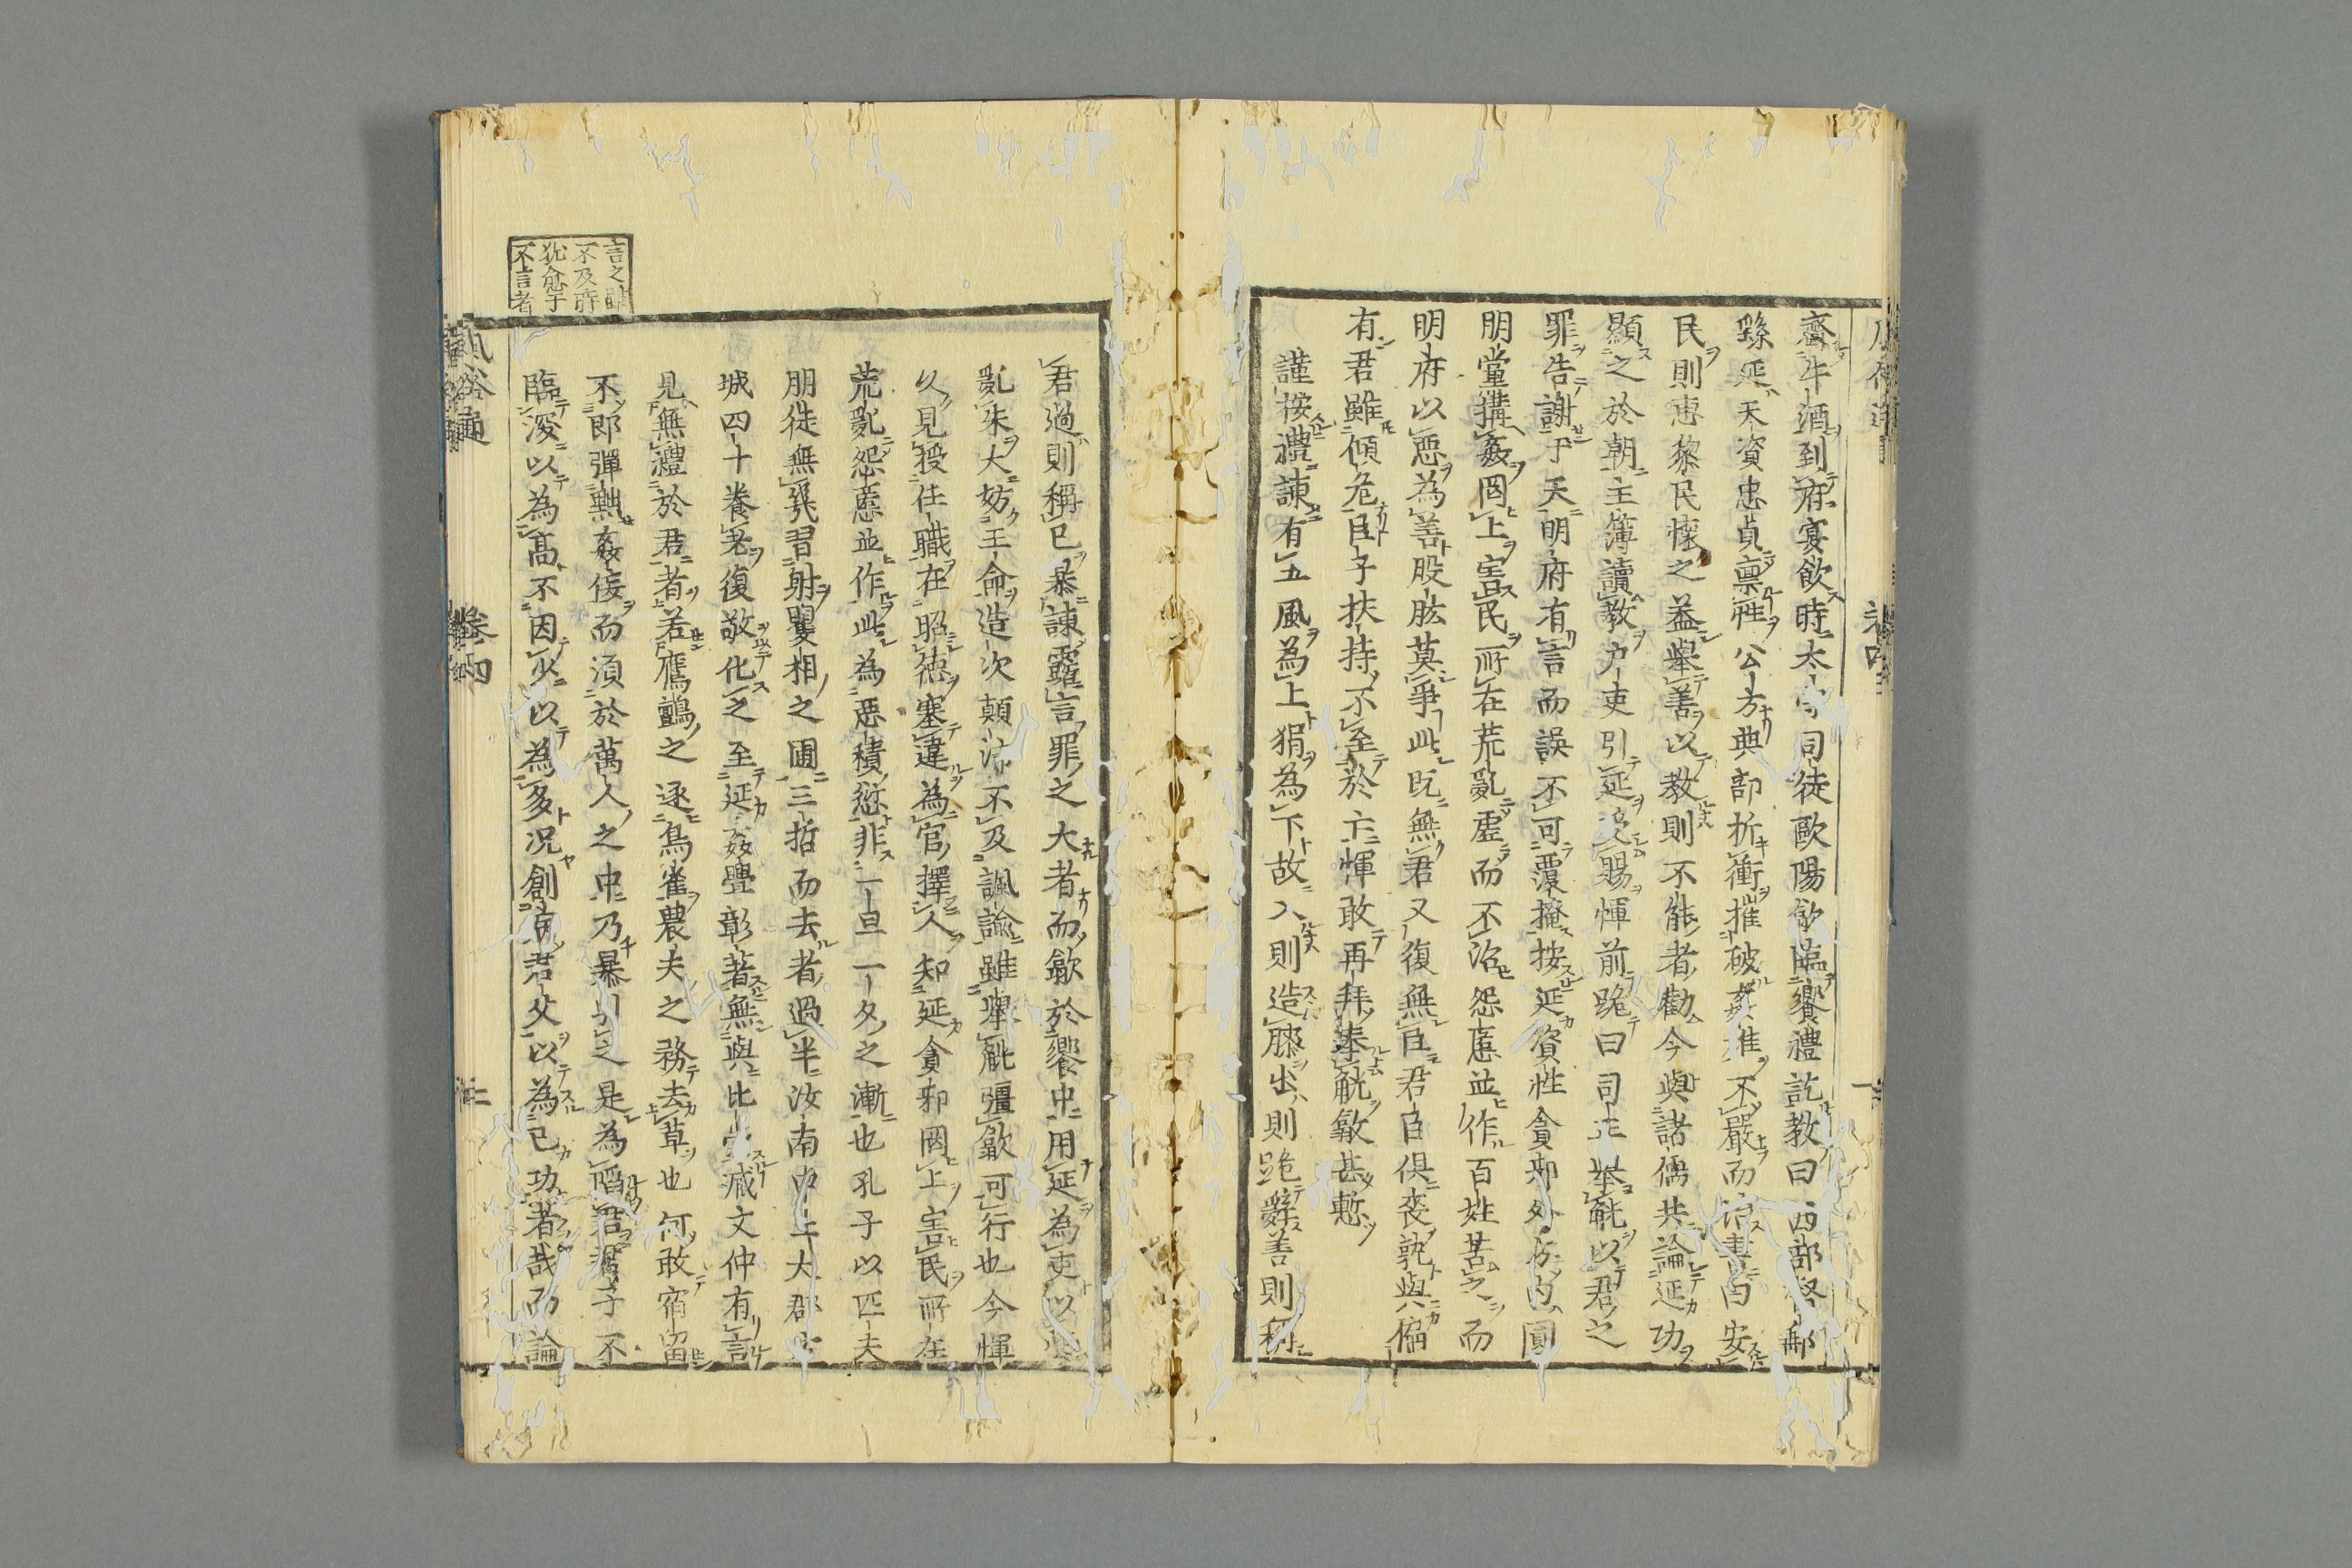 齋牛酒到府宴飲時太守司徒歐陽歙臨饗禮訖教曰西部督郵
繇延天資忠貞禀性公方典部折衝摧破姦雄不嚴而治書曰安
民則惠黎民懷之蓋舉善以教則不能者勸今與諸儒共論延功
顯之於朝主簿讀教户吏引延受賜惲前跪曰司正舉觥以君之
罪告謝于天明府有言而誤不可覆掩按延資性貪邪外方内圓
朋黨搆姦罔上害民所在荒亂虛而不治怨慝並作百姓苦之而
明府以惡為善股肱莫爭此既無君又復無臣君臣俱喪孰與偏
有君雖傾危臣子扶持不至於亡惲敢再拜奉觥歙甚慙
謹按禮諫有五風為上狷為下故入則造膝出則跪辭善則稱
君過則稱已暴諫露言罪之大者而歙於饗中用延為吏以
亂朱大妨王命造次顛沛不及諷諭雖舉觥彊歙可行也今惲
久見授任職在昭德塞違為官擇人知延貪邪罔上害民所在
荒亂怨慝並作此為惡積愆非一旦一夕之漸也孔子以匹夫
朋徒無幾習射矍相之圃三哲而去者過半汝南中土大郡
城四十養老復敬化之至延姦疊彰著無與比崇臧文仲有言
見無禮於君者若鷹鸇之逐鳥雀農夫之務去草也何敢宿留
不即彈黜姦佞而須於萬人之中乃暴引之是為陷君君子不
臨深以為高不因少以為多况創病君父以為已功者哉而論
言之
不及時
犹愈于
不言者
風俗通
卷四
二